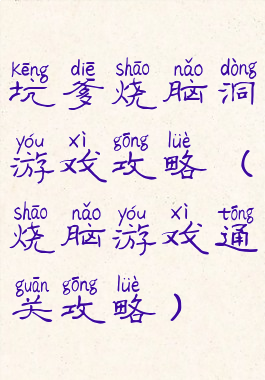 kēng diē shāo nǎo dòng
坑爹烧脑洞
yóu xì gōng lüè
游戏攻略（
shāo nǎo yóu xì tōng
烧脑游戏通
guān gōng lüè
关攻略）